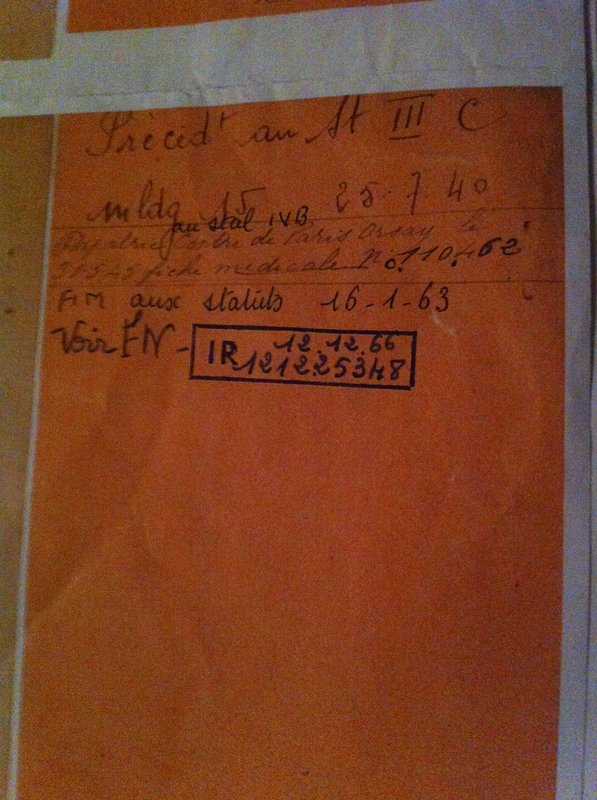 Précéd^t au St III C
mldg 15 25.7.40
au stal IVB
Centre de Paris Orsay le
5 45 fiche médicale N° 110.462
FIM aux statuts 16-1-63
Voir FN - IR 12.12.66
121225348